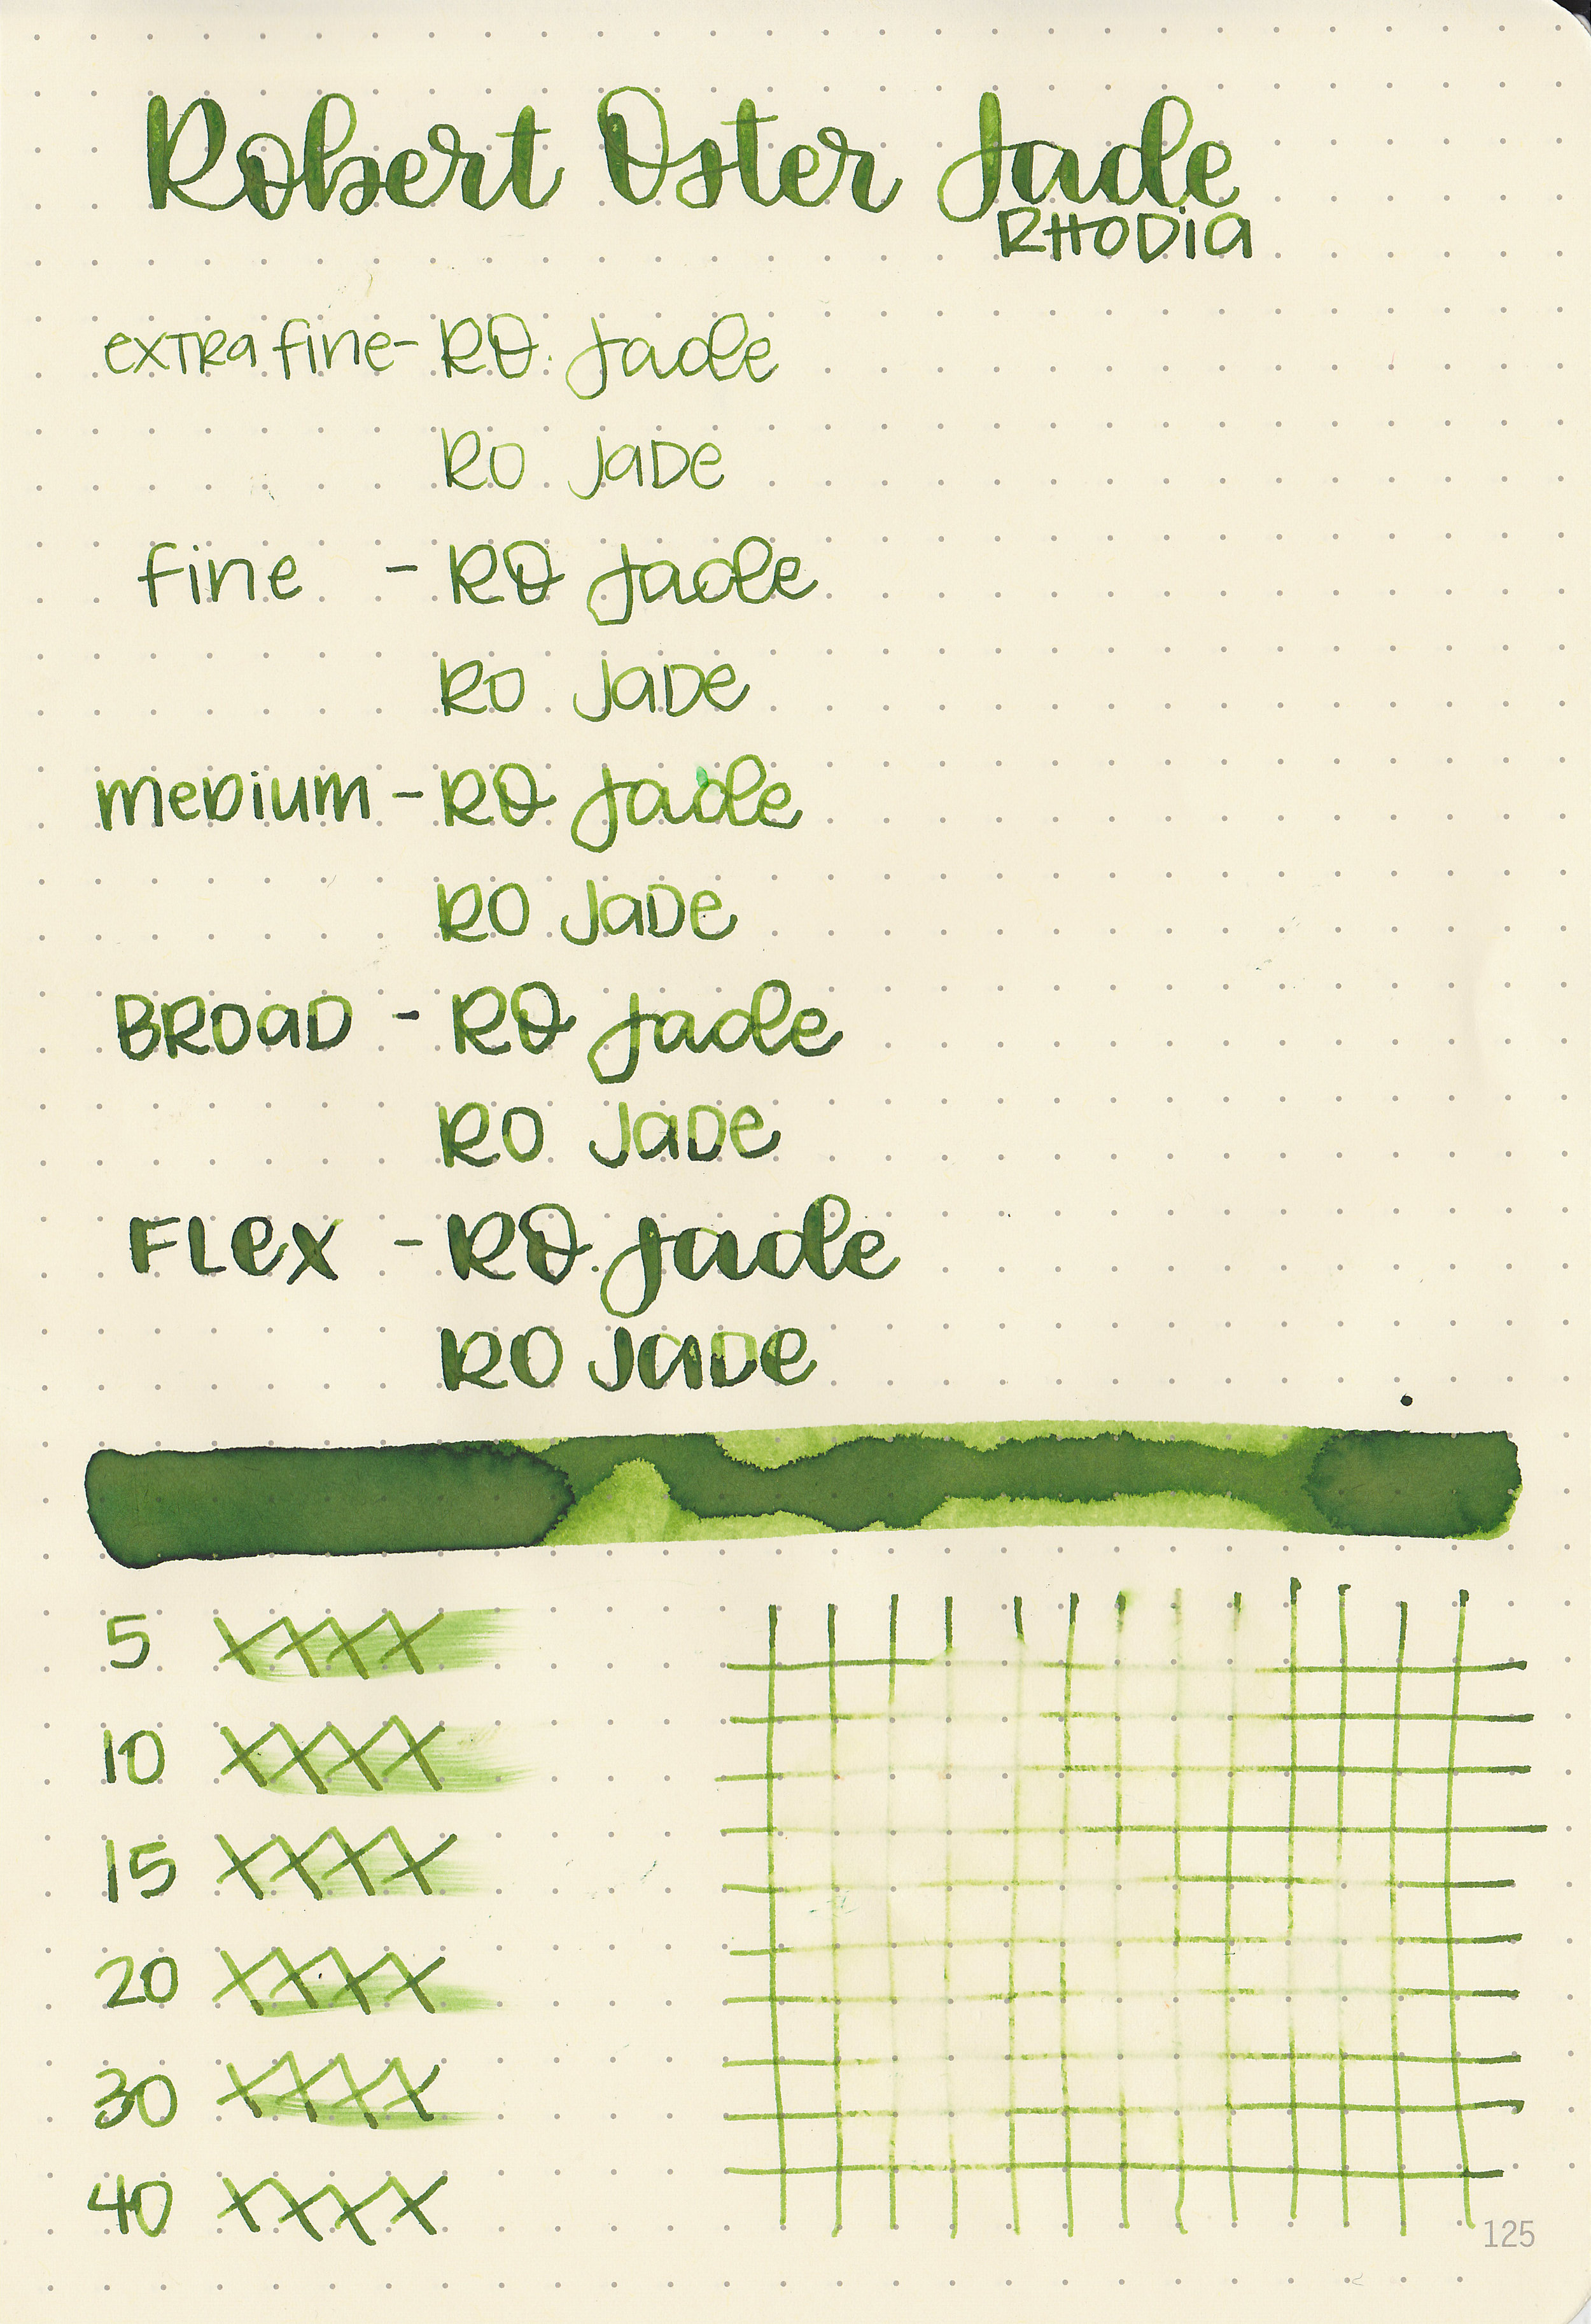 Robert Oster Jade
RHODIA
extra fine - RO Jade
RO JADE
fine - RO Jade
RO JADE
medium - RO Jade
RO JADE
BROAD - RO Jade
RO JADE
FLEX - RO Jade
RO JADE
5 XXXX
10 XXXX
15 XXXX
20 XXXX
30 XXXX
40 XXXX
125